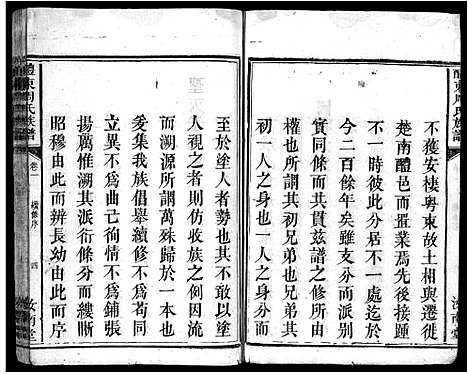 不獲安棲粵東故土相與遷徙
楚南醴邑而置業焉先後接踵
不一時彼此分居不一處迄於
今二百餘年矣雖支分派別而
實同條而共貫茲譜之修所由
權也所謂其初兄弟也其初
初一人之身也以一人之身而
至於塗人者勢也其不敢以塗
人視之者則仿收族之例因流
而溯源所謂萬殊歸於一本也
爰集我族倡舉續修不爲苟同
立異不爲曲己徇情不爲鋪張
揚厲惟溯其派衍條分而縷晰
昭穆由此而辨長幼由此而序
醴東周氏族譜
卷一
續修序
四
汝南堂